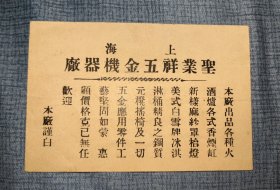 上海
聖業祥五金機器廠
本廠出品各種火
酒爐各式香煙缸
新樣罩燈
美式白雪牌冰淇
淋桶精良之鋼質
元凳搖椅及一切
五金應用零件工
藝堅固如蒙 惠
顧價格克己無任
歡迎
本廠謹白